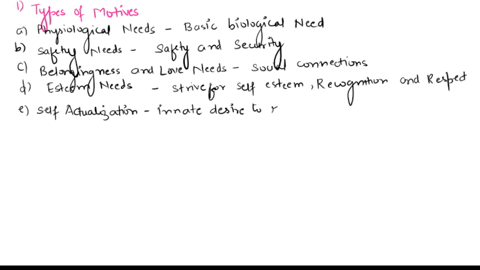 1) Types of Motives
a) Physiological Needs - Basic biological Need
b) Safety Needs - Safety and Security
c) Belongingness and Love Needs - Social connections
d) Esteem Needs - Strive for self esteem, Recognition and Respect
e) Self Actualization - innate desire to